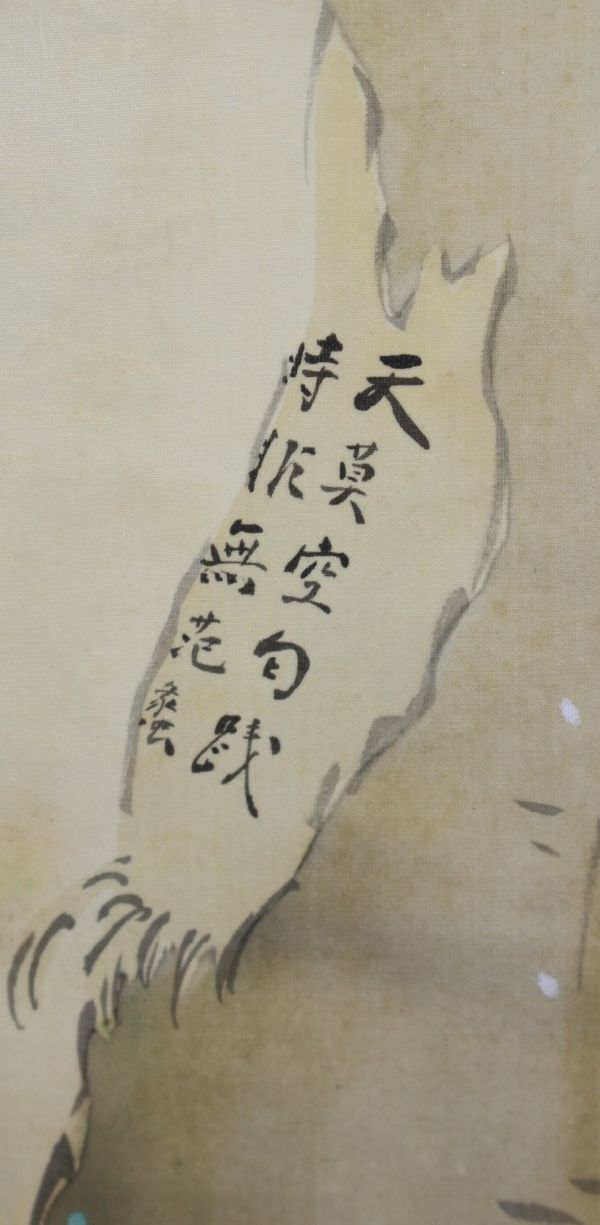 天莫空勾践
時非無范蠡